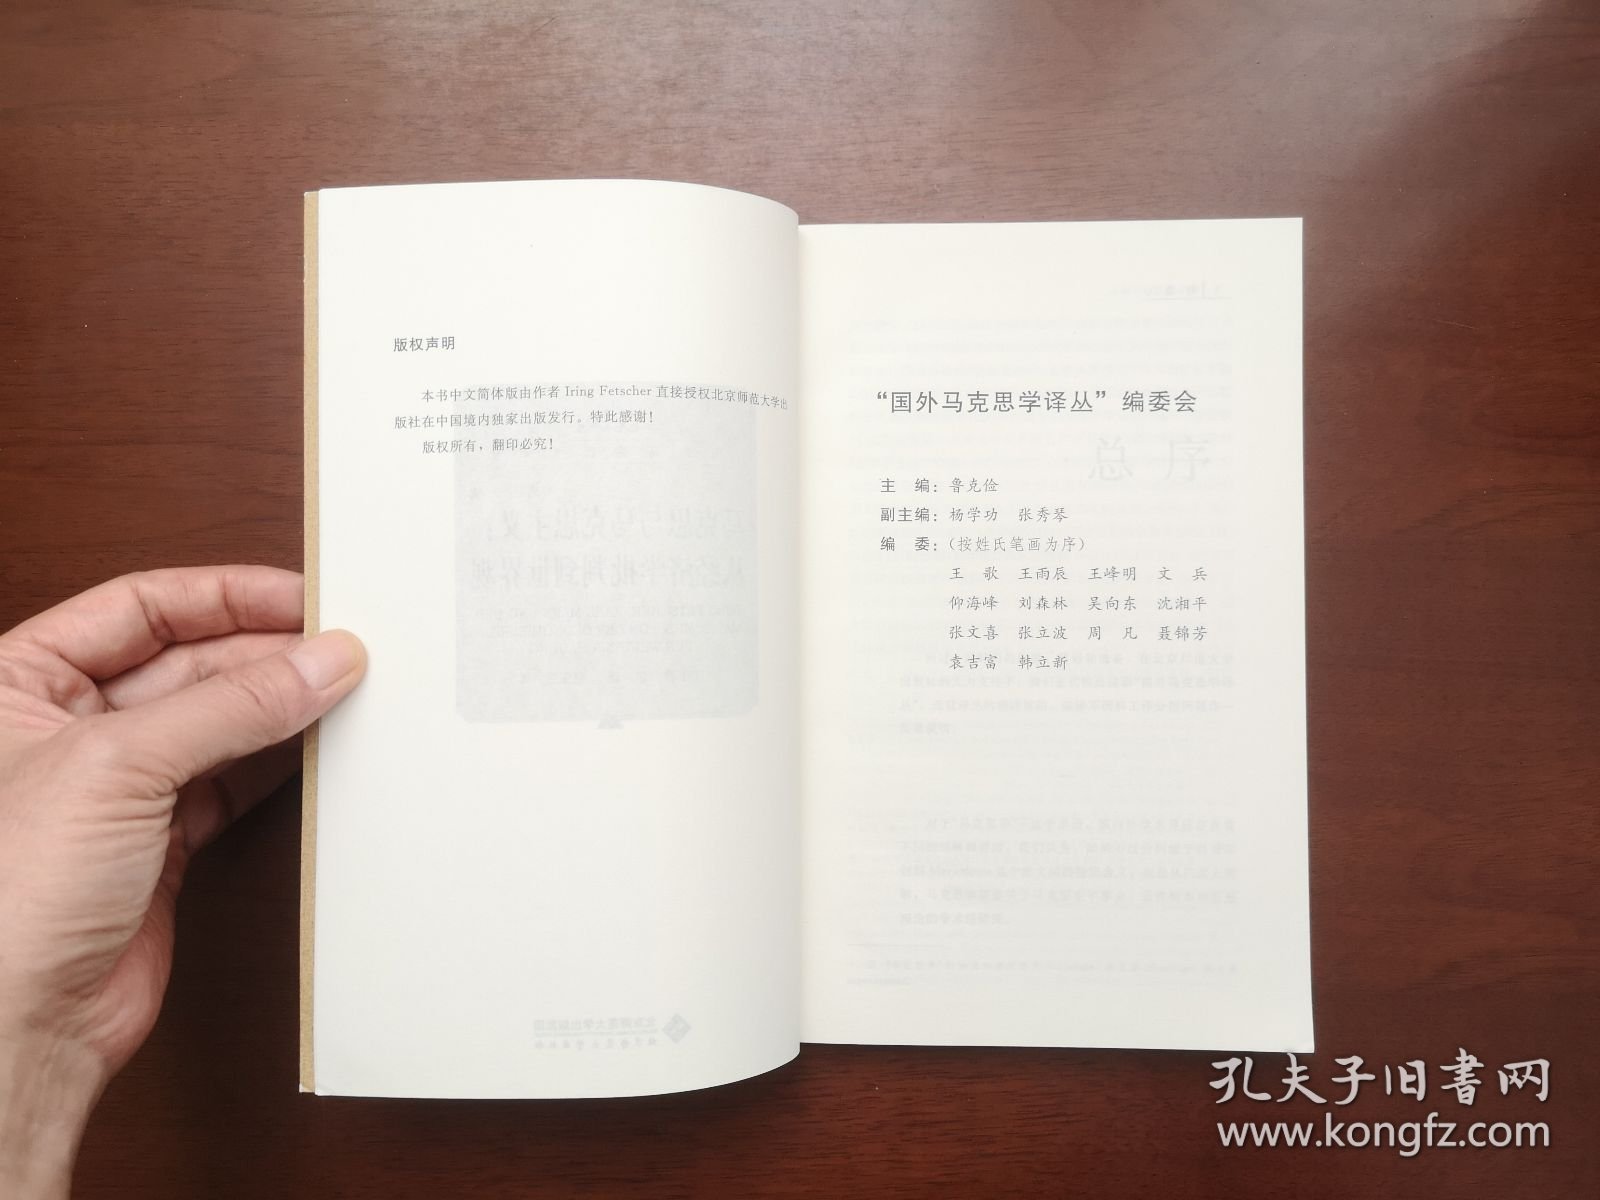 版权声明
本书中文简体版由作者 Iring Fetscher 直接授权北京师范大学出
版社在中国境内独家出版发行。特此感谢！
版权所有，翻印必究！
“国外马克思学译丛”编委会
总 序
主 编：鲁克俭
副主编：杨学功 张秀琴
编 委：（按姓氏笔画为序）
王 歌 王雨辰 王峰明 文 兵
仰海峰 刘森林 吴向东 沈湘平
张文喜 张立波 周 凡 聂锦芳
袁吉富 韩立新
孔夫子旧书网
www.kongfz.com